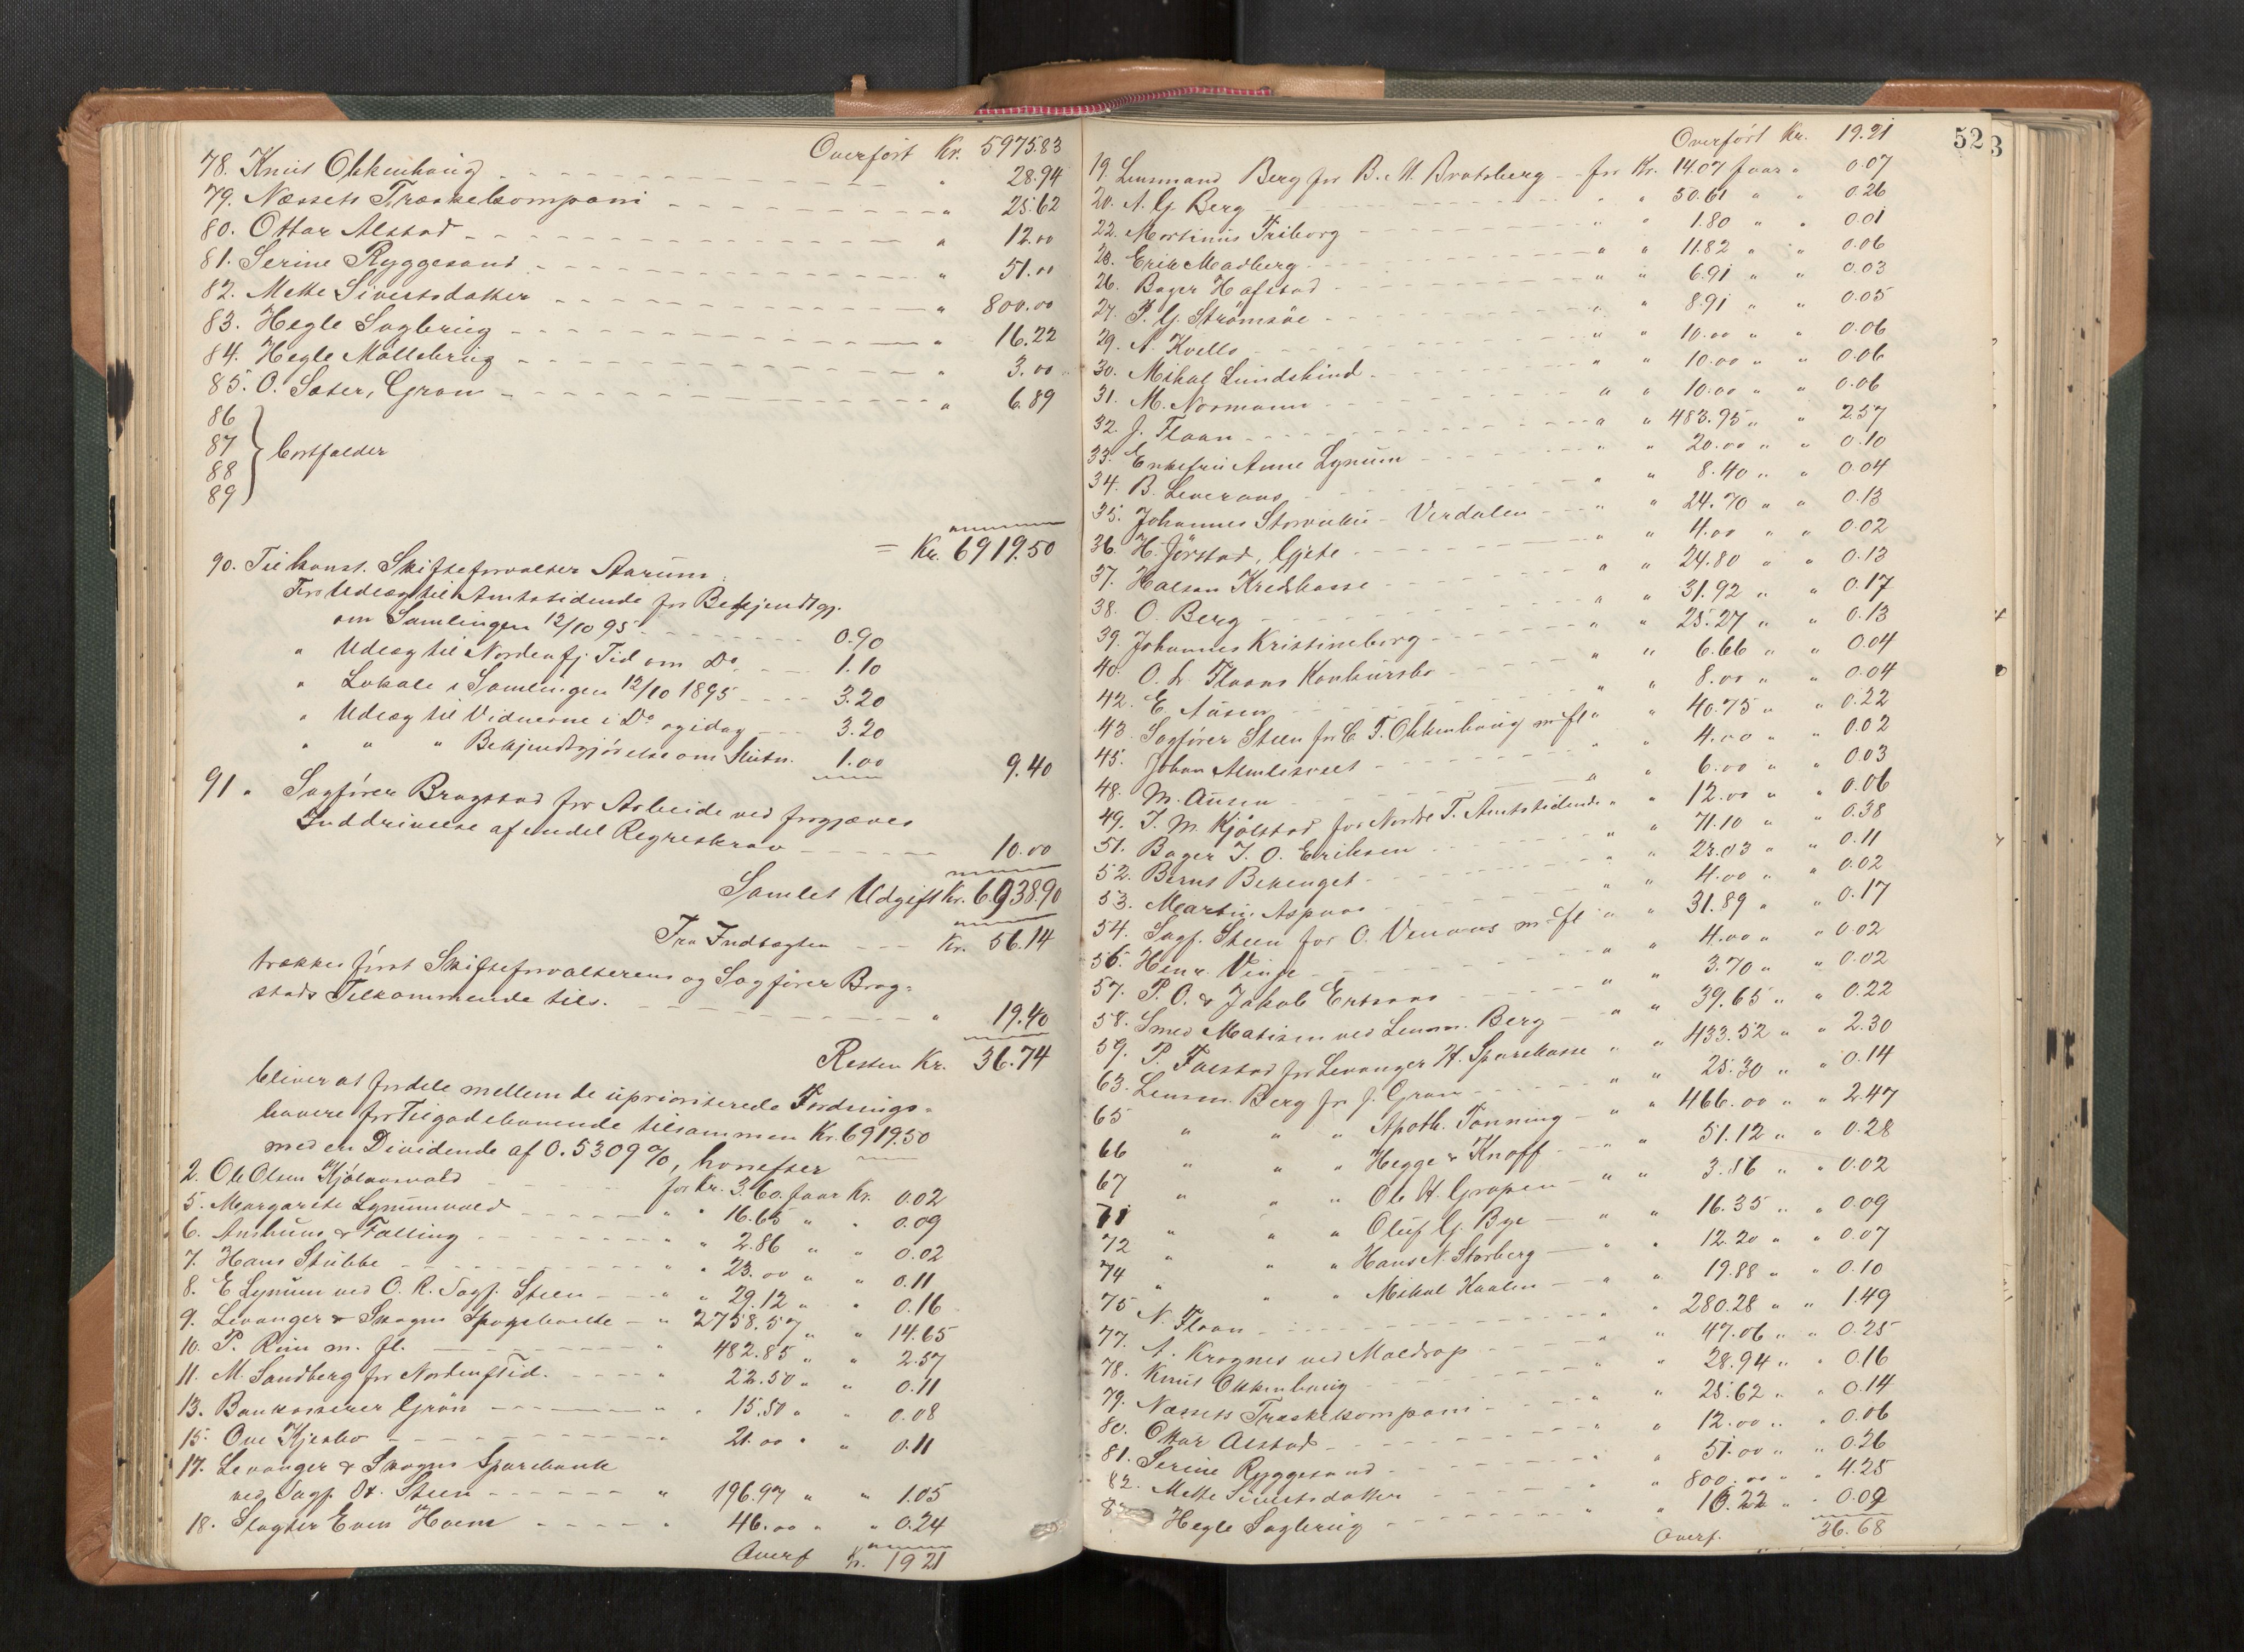 Overført Kr. 5975.83
78. Knut Okkenhaug - - - " 28.94
79. Næssets Træskekompani - - - " 25.62
80. Ottar Alstad - - - " 12.00
81. Serine Ryggesand - - - " 51.00
82. Mette Sivertsdatter - - - " 800.00
83. Hegle Sagbrug - - - " 16.22
84. Hegle Møllebrug - - - " 3.00
85. O. Sæter, Gran - - - " 6.89
86
87
88
89
} bortfalder
= Kr. 6919.50
90. Til konst. Skifteforvalter Aarum:
For Udlæg til Amtstidende for Bekjendtgj.
om Samlingen 12/10 95 - - - 0.90
" Udlæg til Nordenfj. Tid om Do - - 1.10
" Lokale i Samlingen 12/10 1895 - - - 3.20
" Udlæg til Vidnerne i Do og idag - - - 3.20
" " " Bekjendtgjørelse om Slutn. 1.00 9.40
91 " Sagfører Bragstad for Arbeide ved forgjæves
Inddrivelse af endel Regreskrav - - - 10.00
Samlet Udgift Kr. 6938.90
Fra Indtægten - - - Kr. 56.14
trækkes først Skifteforvalterens og Sagfører Brag=
stads Tilkommende tils. - - - " 19.40
Resten Kr. 36.74
bliver at fordele mellem de uprioriterede Fordrings=
havere for Tilgodehavende tilsammen Kr. 6919.50
med en Dividende af 0.5309 %, hvorefter
2. Ole Olsen Kjølaasvald - - - for Kr. 3.60 faar Kr. 0.02
5. Margarete Lynumvald - - - " " 16.65 " " 0.09
6. Anshuus & Falling - - - " " 2.86 " " 0.02
7. Hans Stubbe - - - " " 23.00 " " 0.11
8. E Lynum ved O. R. Sagf. Steen - - - " " 29.12 " " 0.16
9. Levanger & Skogns Sparebank - " 2758.57 " " 14.65
10. P. Rinn m. fl. - - - " 482.85 " " 2.57
11. M. Sandberg for Nordenfj Tid. - - - " 22.50 " " 0.11
13. Bankkasserer Grøn - - - " " 15.50 " " 0.08
15. Ove Kjesbo - - - " 21.00 " " 0.11
17. Levanger & Skogns Sparebank
ved Sagf. Ot. Steen - - - " 196.97 " " 1.05
18. Slagter Even Hoem - - - " 46.00 " " 0.24
Overf Kr. 19 21
52
3
Overført Kr. 19.21
19. Lensmand Berg for B. M. Bratsberg - - for Kr. 14.07 faar " 0.07
20. A. G. Berg - - - " " 50.61 " " 0.26
22. Martinus Friborg - - - " " 1.80 " " 0.01
23. Erik Madberg - - - " " 11.82 " " 0.06
26. Bager Hafstad - - - " " 6.91 " " 0.03
27. P. G. Strømsøe - - - " " 8.91 " " 0.05
29. A. Kvello - - - " " 10.00 " " 0.06
30. Mikal Lundskind - - - " " 10.00 " " 0.06
31. M. Normann - - - " " 10.00 " " 0.06
32. J. Floan - - - " " 483.95 " " 2.57
33. Enkefru Anne Lynum - - - " " 20.00 " " 0.10
34. B. Leveraas - - - " " 8.40 " " 0.04
35. Johannes Storvuku - Verdalen - - " " 24.70 " " 0.13
36. H. Jørstad, Gjete - - - " " 4.00 " " 0.02
37. Halsan Kredskasse - - - " " 24.80 " " 0.13
38. O. Berg - - - " " 31.92 " " 0.17
39. Johannes Kristineborg - - - " " 25.27 " " 0.13
40. O. L. Floans Konkursbo - - - " " 6.66 " " 0.04
42. E. Ausen - - - " " 8.00 " " 0.04
43. Sagfører Steen for C. T. Okkenhaug m fl " " 40.75 " " 0.22
45. Johan Almlisveet - - - " " 4.00 " " 0.02
48. M. Ausen - - - " " 6.00 " " 0.03
49. J. M. Kjølstad for Nordre T. Amtstidende " " 12.00 " " 0.06
51. Bager J. O. Eriksen - - - " " 71.10 " " 0.38
52. Bernt Bekenget - - - " " 23.03 " " 0.11
53. Martin Aspaas - - - " " 4.00 " " 0.02
54. Sagf. Steen for O. Venaas m fl " " 31.89 " " 0.17
56. Henr. Vinje - - - " " 4.00 " " 0.02
57. P. O. & Jakob Ertsaas - - - " " 3.70 " " 0.02
58. Smed Matisen ved Lensm. Berg - - " " 39.65 " " 0.22
59. P. Falstad for Levanger H. Sparekasse " " 433.52 " " 2.30
63. Lensm. Berg for J. Gran - - - " " 25.30 " " 0.14
65 " " " Apoth. Tønning - " " 466.00 " " 2.47
66 " " " Hegge & Knoff - " " 51.12 " " 0.28
67 " " " Ole H. Grapen - " " 3.86 " " 0.02
71 " " " Oluf G. Bye - " " 16.35 " " 0.09
72 " " " Hans N. Storberg - " " 12.20 " " 0.07
74 " " " Mikal Haalen - " " 19.88 " " 0.10
75 N. Floan - - - " 280.28 " " 1.49
77. A. Kragnes ved Maldrop - - - " " 47.06 " " 0.25
78. Knut Okkenhaug - - - " " 28.94 " " 0.16
79. Næssets Træskekompani - - - " " 25.62 " " 0.14
80. Ottar Alstad - - - " " 12.00 " " 0.06
81. Serine Ryggesand - - - " " 51.00 " " 0.26
82. Mette Sivertsdatter - - - " " 800.00 " " 4.25
83 Hegle Sagbrug - - - " " 16.22 " " 0.09
Overf. 36.68